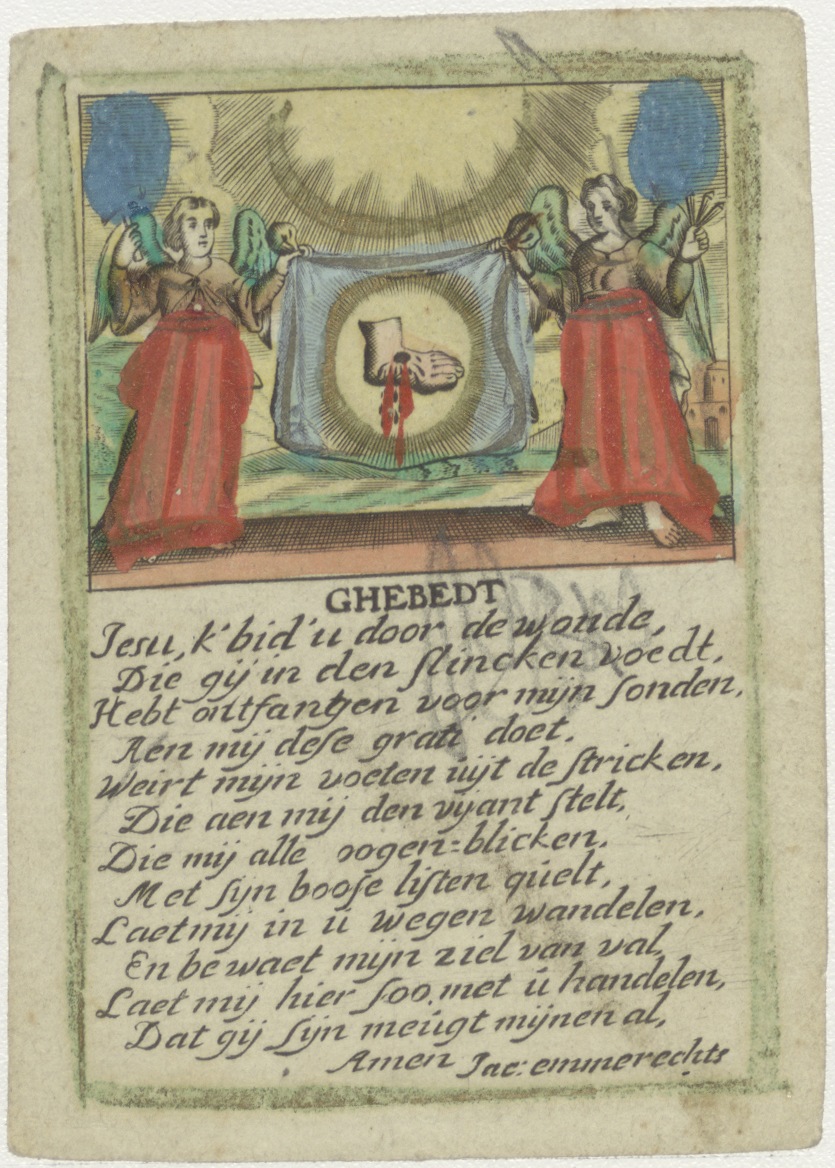 GHEBEDT
Jesu, k'bid'u door de wonde,
Die gij in den slincken voedt,
Hebt ontfangen voor mijn sonden,
Aen mij dese grati doet.
Weirt mijn voeten uijt de stricken,
Die aen mij den vijant stelt,
Die mij alle oogen=blicken,
Met sijn boose listen quelt,
Laet mij in ú wegen wandelen,
En bewaet mijn ziel van val,
Laet mij hier soo met ú handelen,
Dat gij sijn meúgt mijnen al,
Amen Jac: emmerechts